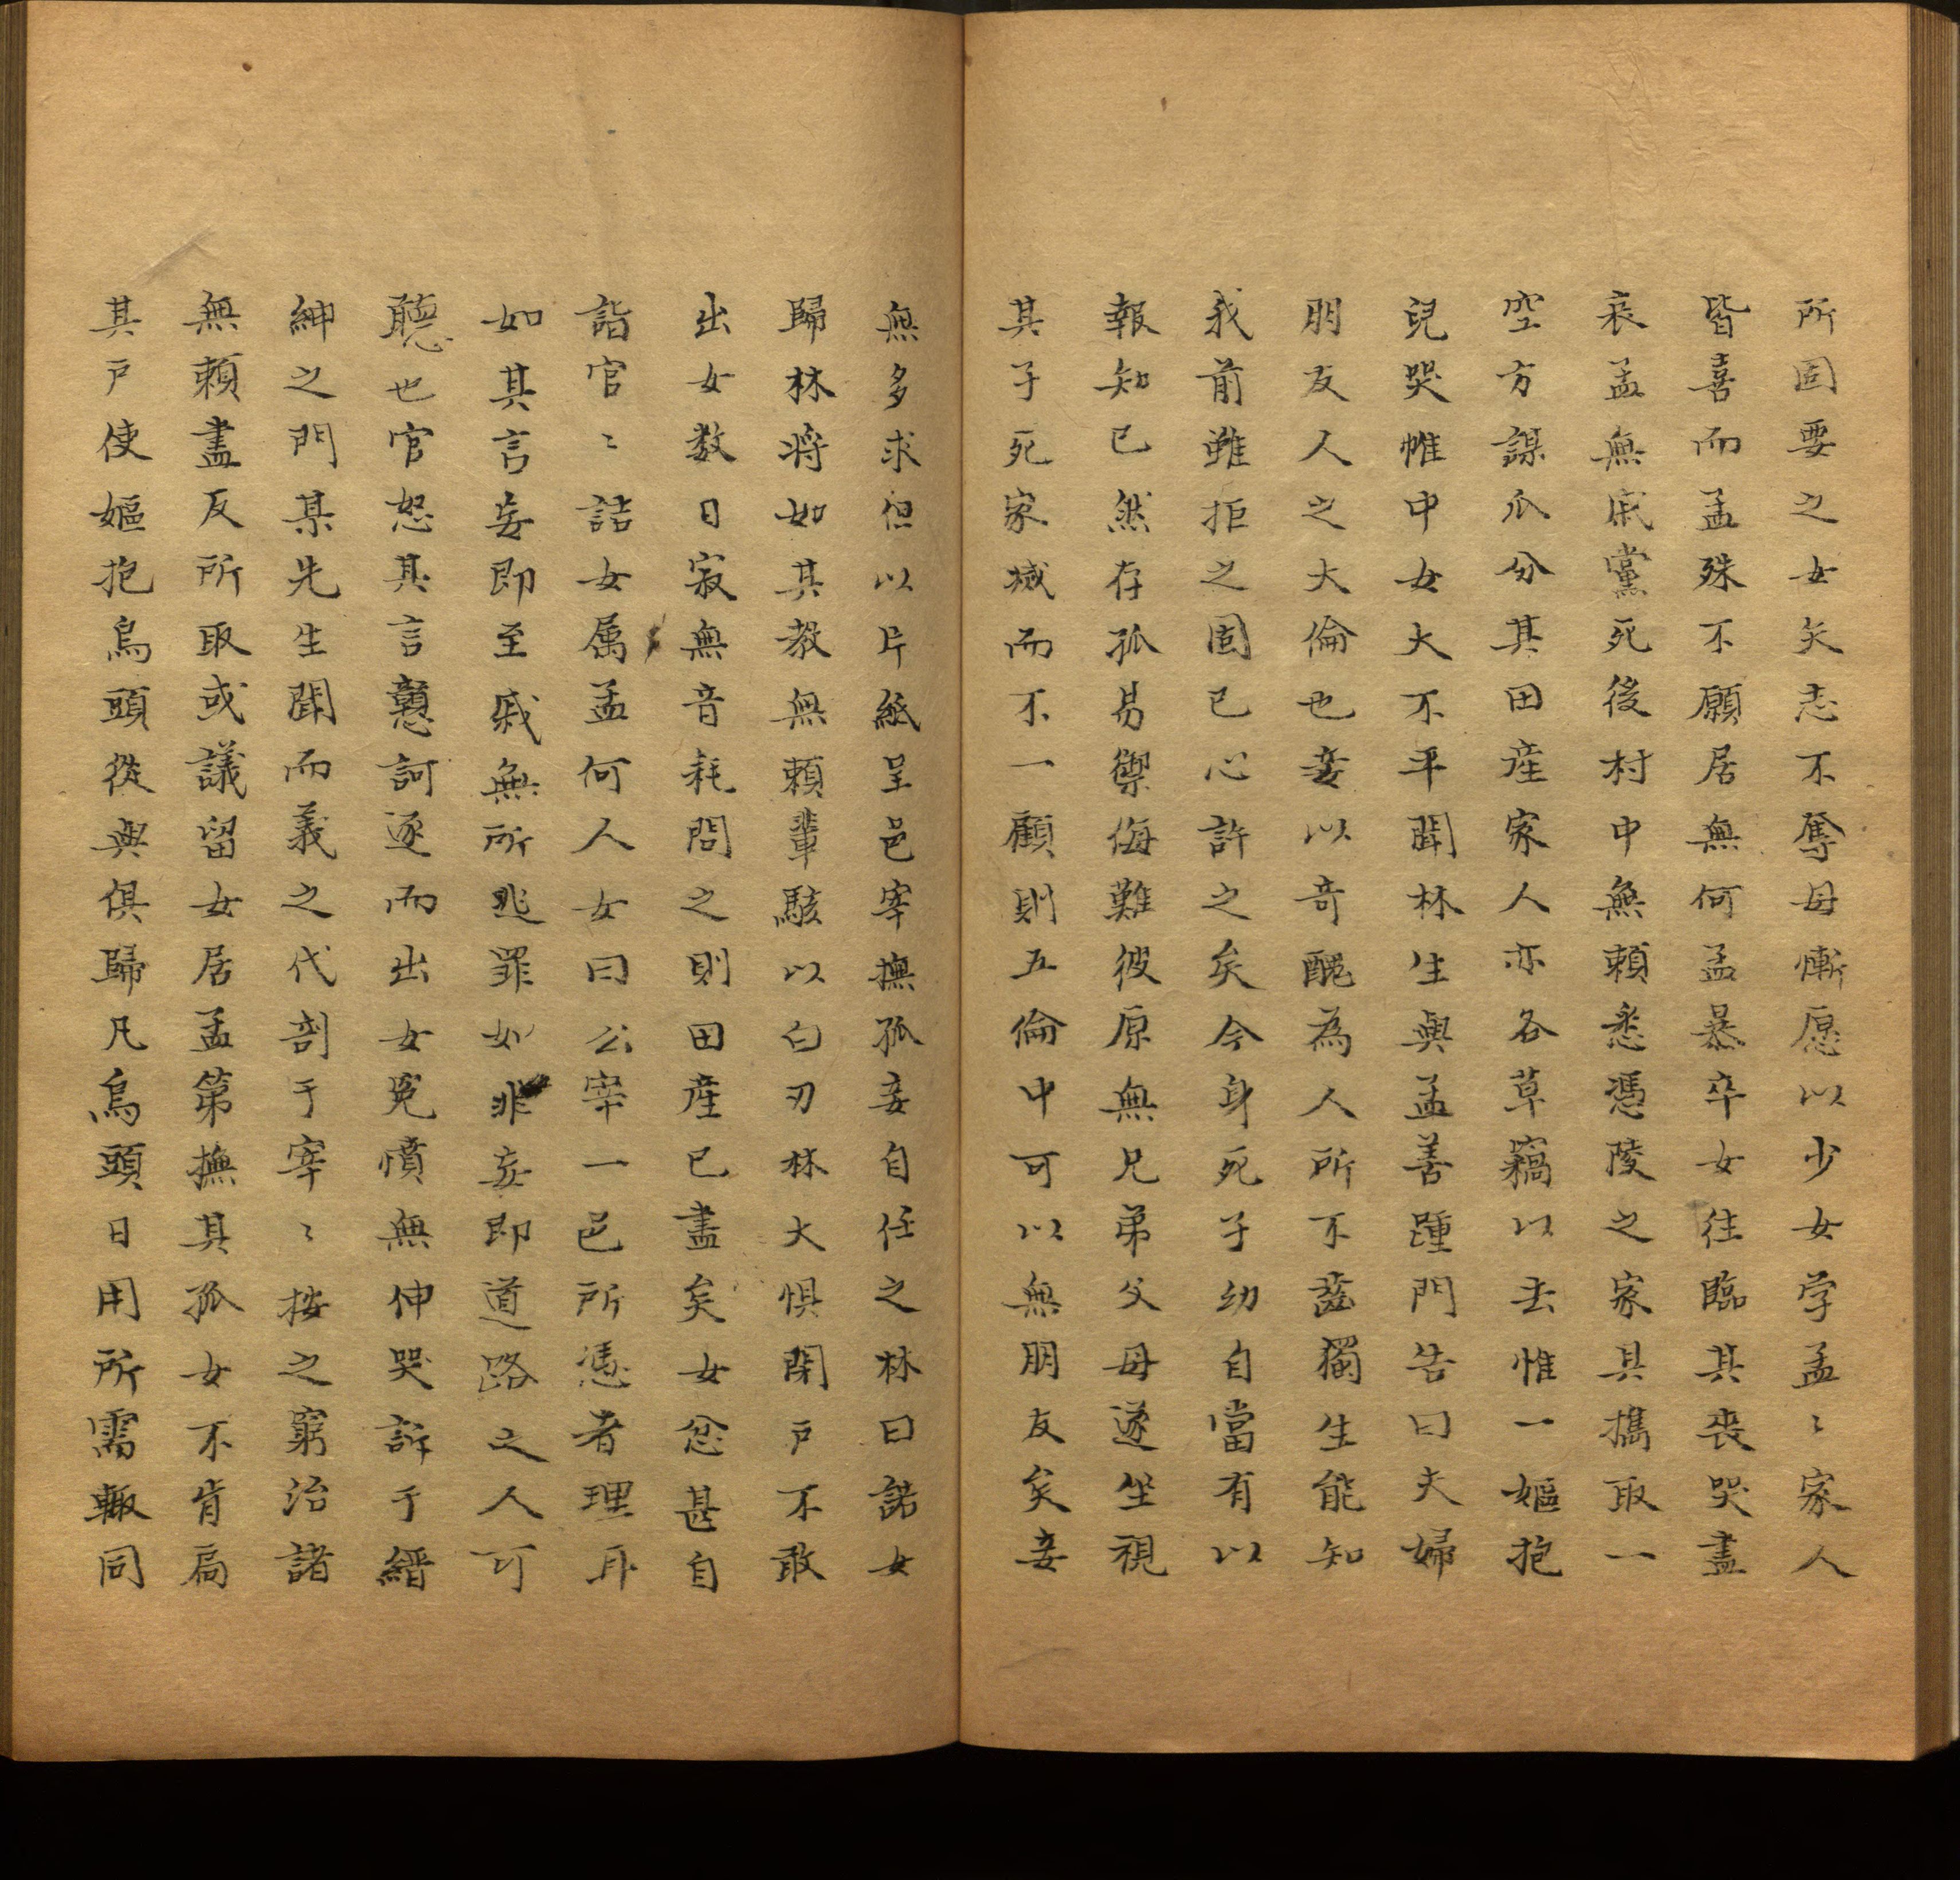 所固要之女矢志不奪母慚愿以少女字孟〻家人
皆喜而孟殊不願居無何孟暴卒女往臨其喪哭盡
哀孟無戚黨死後村中無賴悉憑陵之家具攜取一
空方謀瓜分其田産家人亦各草竊以去惟一嫗抱
兒哭帷中女大不平聞林生與孟善踵門告曰夫婦
朋友人之大倫也妾以奇醜為人所不齒獨生能知
我前雖拒之固已心許之矣今身死子幼自當有以
報知已然存孤易禦侮難彼原無兄弟父母遂坐視
其子死家滅而不一顧則五倫中可以無朋友矣妾
無多求但以片紙呈邑宰撫孤妾自任之林曰諾女
歸林將如其教無賴輩駭以白刃林大惧閉戶不敢
出女数日寂無音耗問之則田産已盡矣女忿甚自
詣官〻詰女属孟何人女曰公宰一邑所憑者理耳
如其言妄即至戚無所逃罪如非妄即道路之人可
聽也官怒其言戇訶逐而出女冤憤無伸哭訴于縉
紳之門某先生聞而義之代剖于宰〻按之窮治諸
無賴盡反所取或議留女居孟第撫其孤女不肯扃
其戸使嫗抱烏頭從與俱歸凡烏頭日用所需輙同